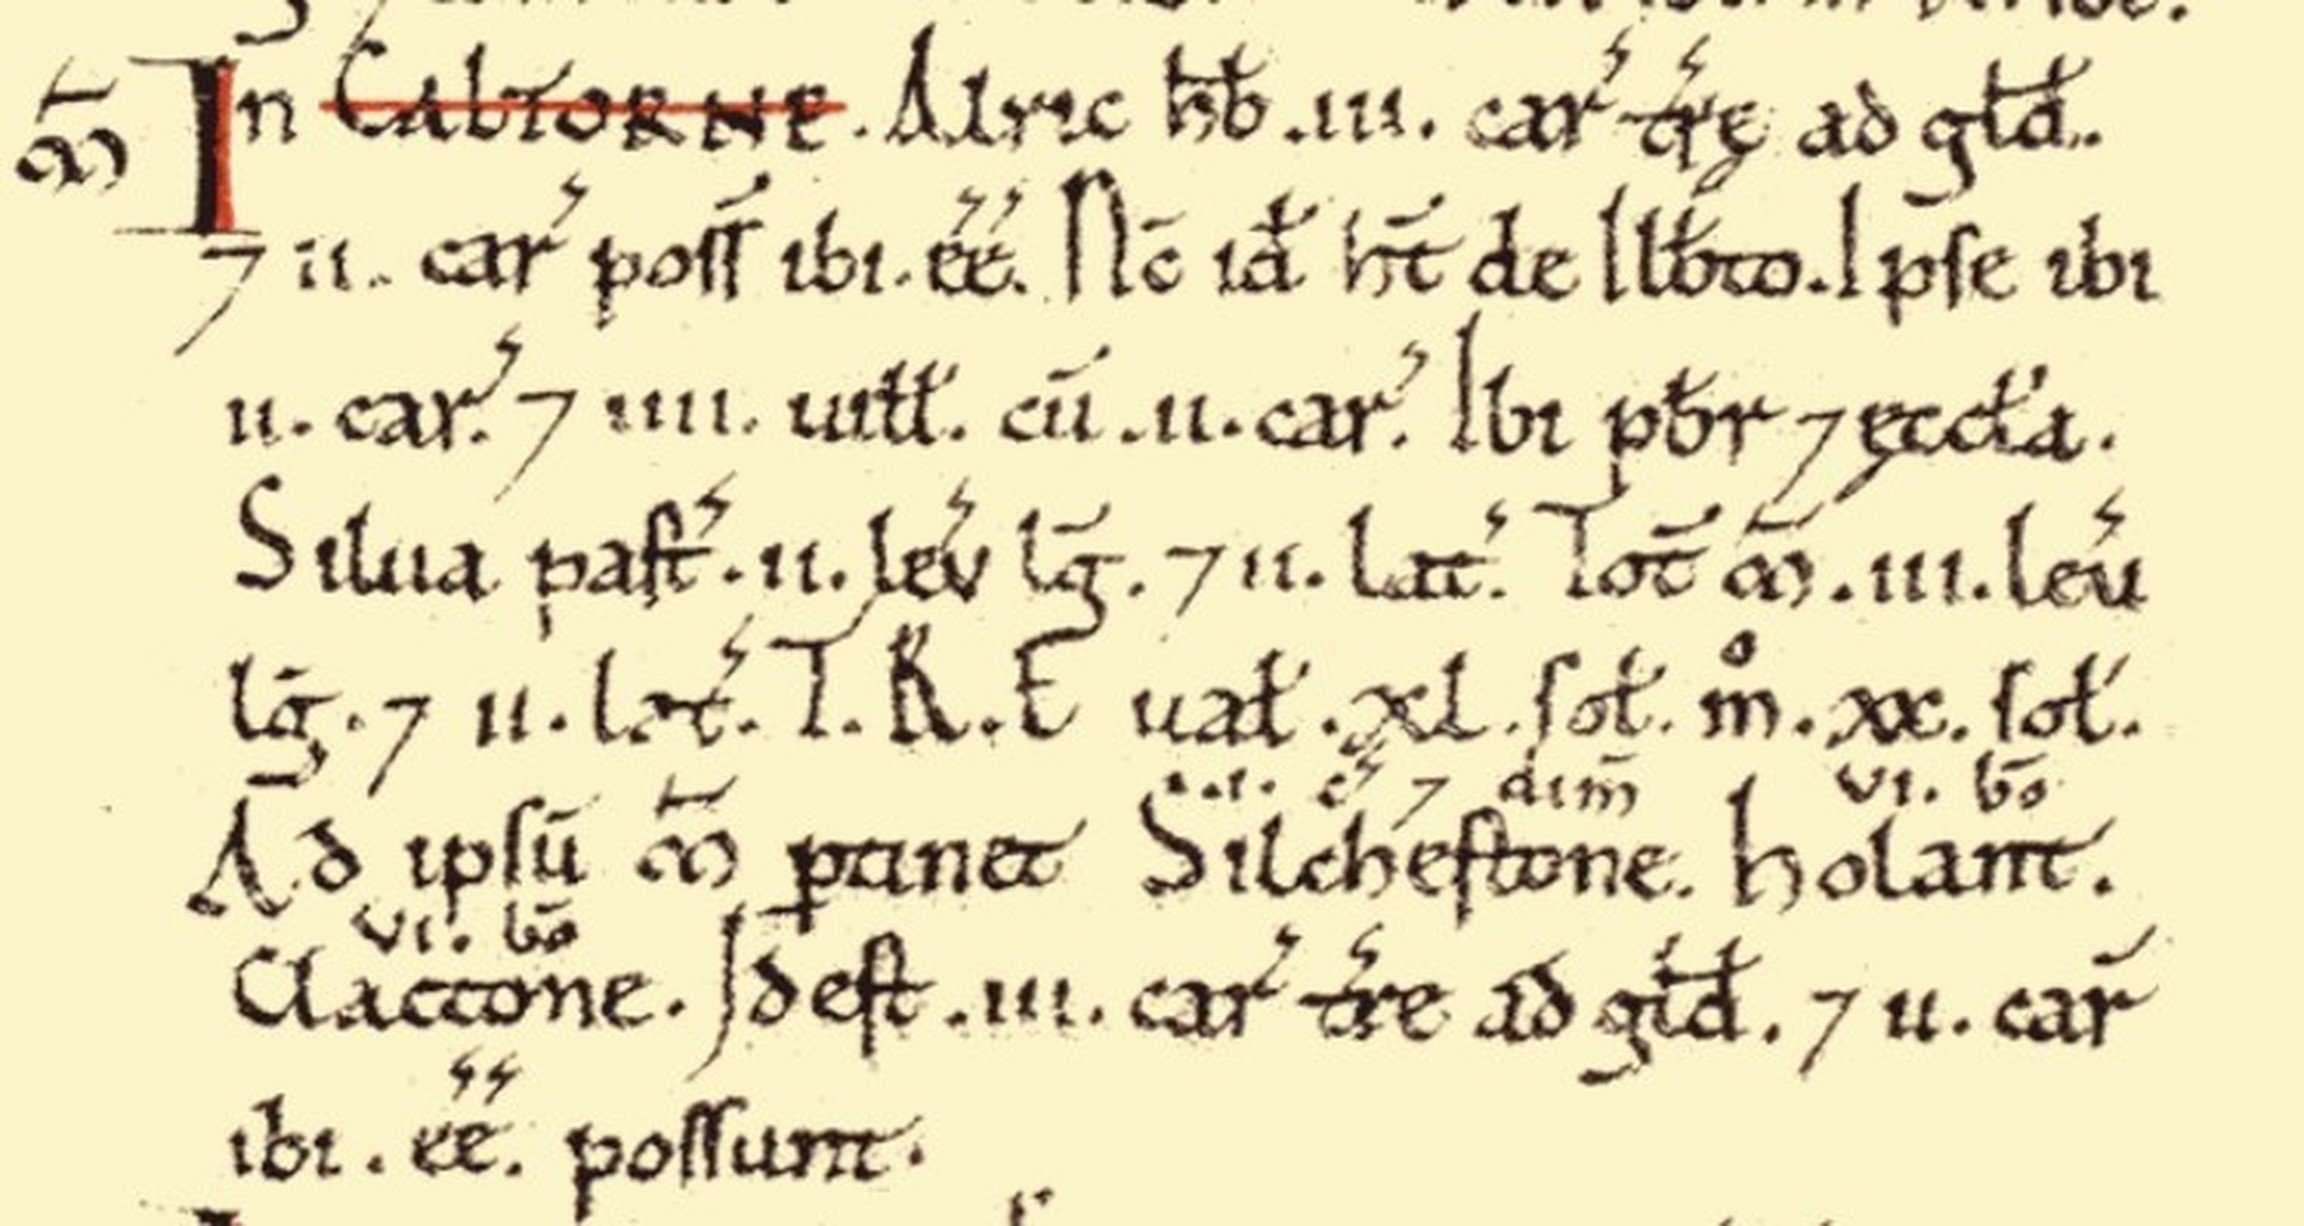 m̄ In CALTORNE. Alric h̄b .iii. car' tr̄ę ad głd̄.
7 ii. car' poss̄ ibi. ēē. Nc̄ id̄ ht̄ de Ilb̄to. Ipse ibi
ii. car'. 7 iiii. uiłł. cū .ii. car'. Ibi pb̄r 7 ęccła.
Silua past'. ii. lev' lḡ. 7 ii. lat'. Tot̄ m̄. iii. leu'
lḡ. 7 ii. lat'. T.R.E uał. xl. soł. m̊. xx. soł.
c' 7 dim̄ vi. bō
Ad ipsū m̄ ptinet Silchestone. holant.
vi. bō
Clactone. Idest .iii. car' tr̄e ad głd̄. 7 ii. car̄
ibi. ēē. possunt.